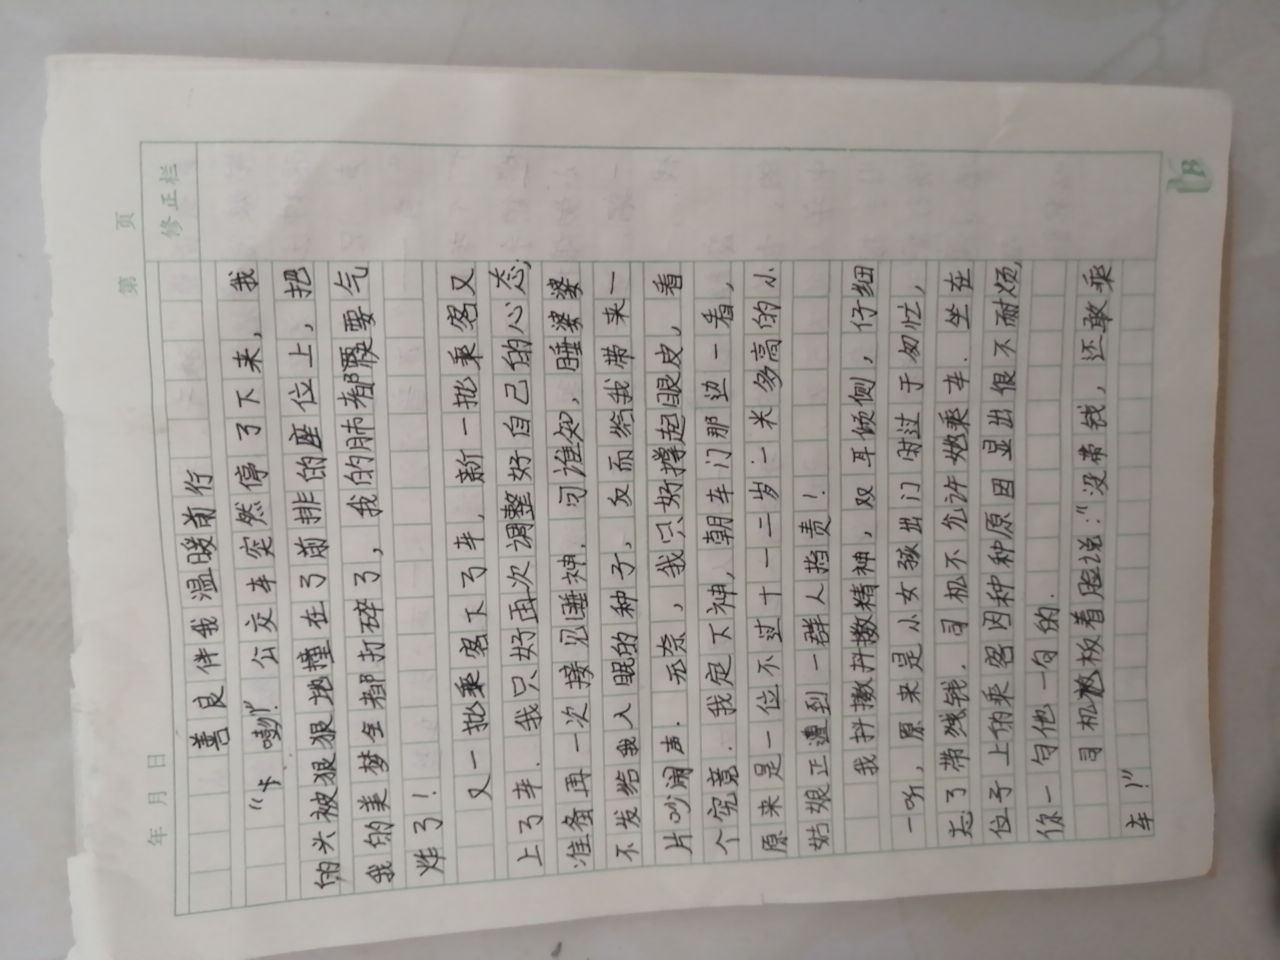 年 月 日 第 页
修正栏
善良伴我温暖前行
“卡嘣!”公交车突然停了下来，我
的头被狠狠地撞在了前排的座位上，把
我的美梦全都打碎了，我的肺都要气
炸了！
又一批乘客下了车，新一批乘客又
上了车．我只好再次调整好自己的心态，
准备再一次接见睡神．可谁知，睡婆婆
不发给我入眠的种子，反而给我带来一
片吵闹声．无奈，我只好撑起眼皮，看
个究竟．我定下神，朝车门那边一看，
原来是一位不过十一二岁一米多高的小
姑娘正遭到一群人指责！
我抖擞抖擞精神，双耳倾侧，仔细
一听，原来是小女孩出门时过于匆忙，
忘了带钱．司机不允许她乘车．坐在
位子上的乘客因种种原因显出很不耐烦，
你一句他一句的．
司机板着脸说：“没带钱，还敢乘
车！”
B